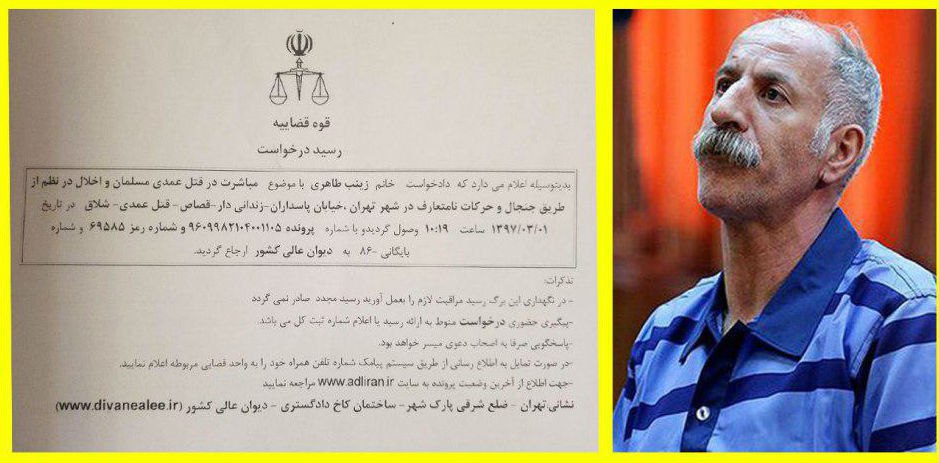 قوه قضاییه
رسید درخواست
بدینوسیله اعلام می دارد که دادخواست خانم زینب طاهری با موضوع مباشرت در قتل عمدی مسلمان و اخلال در نظم از
طریق جنجال و حرکات نامتعارف در شهر تهران ،خیابان پاسداران-زندانی دار-قصاص- قتل عمدی- شلاق در تاریخ
۱۳۹۷/۰۳/۰۱ ساعت ۱۰:۱۹ وصول گردیدو با شماره پرونده ۹۶۰۹۹۸۲۱۰۴۰۰۱۱۰۵ و شماره رمز ۶۹۵۸۵ و شماره
بایگانی -۸۶ به دیوان عالی کشور ارجاع گردید.
تذکرات:
- در نگهداری این برگ رسید مراقبت لازم را بعمل آورید رسید مجدد صادر نمی گردد
-پیگیری حضوری درخواست منوط به ارائه رسید یا اعلام شماره ثبت کل می باشد.
-پاسخگویی صرفا به اصحاب دعوی میسر خواهد بود.
-در صورت تمایل به اطلاع رسانی از طریق سیستم پیامک شماره تلفن همراه خود را به واحد قضایی مربوطه اعلام نمایید.
-جهت اطلاع از آخرین وضعیت پرونده به سایت www.adliran.ir مراجعه نمایید
نشانی:تهران - ضلع شرقی پارک شهر- ساختمان کاخ دادگستری - دیوان عالی کشور (www.divanealee.ir)